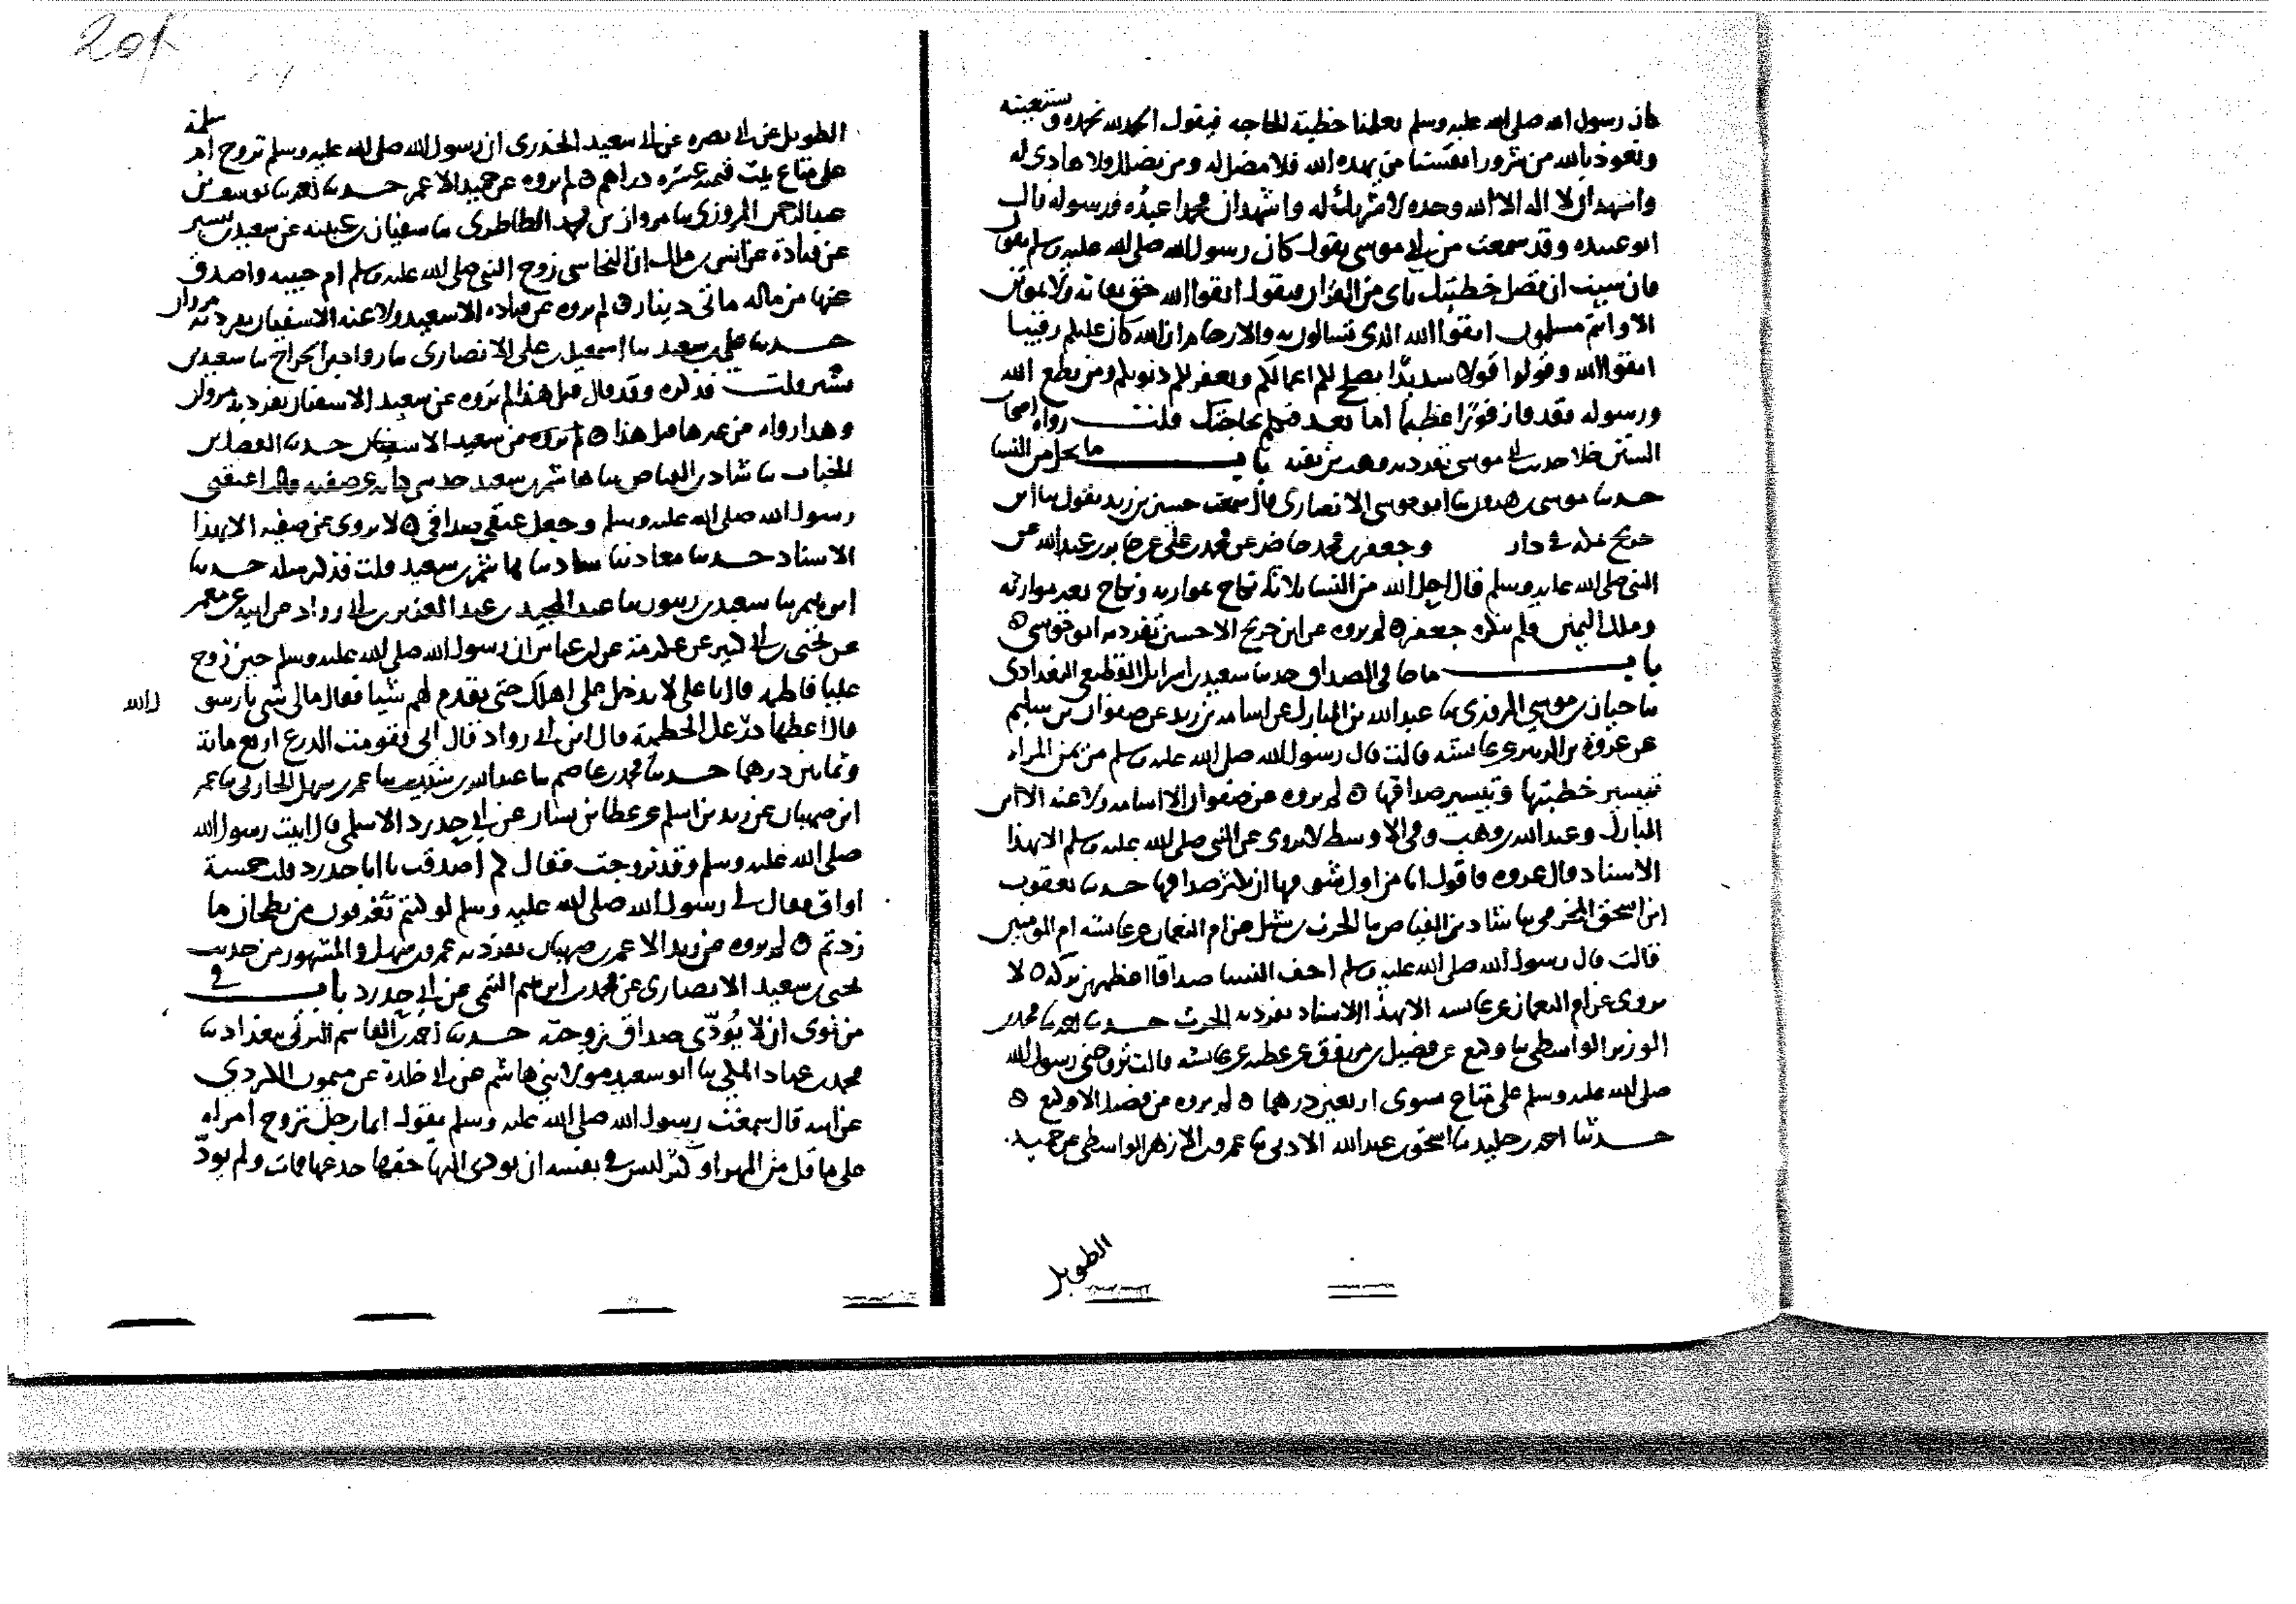 كان رسول الله صلى الله عليه وسلم يعلمنا خطبة الحاجه فيقول الحمد لله نحمده ونستعينه
ونعوذ بالله من شرور انفسنا من يهده الله فلا مضل له ومن يضلل ولا هادى له
واشهد ان لا اله الا الله وحده لا شريك له واشهد ان محمدا عبده ورسوله قال
ابو عبيده وقد سمعت من ابى موسى يقول كان رسول الله صلى الله عليه وسلم يقول
فان شيت ان تصل خطبتك باى من القران فيقول اتقوا الله حق تقاته ولا تموتن
الا وانتم مسلمون اتقوا الله الذى تسالون به والارحام ان الله كان عليكم رقيبا
اتقوا الله وقولوا قولا سديدا يصلح لكم اعمالكم ويغفر لكم ذنوبكم ومن يطع الله
ورسوله فقد فاز فوزا عظيما اما بعد فتكلم بحاجتك قلت رواه اصحاب
السنن خلا حديث ابى موسى تفرد به وهب بن بقيه باب ما يحل من النسا
حدثنا موسى بن هرون ثنا ابو موسى الانصارى قال سمعت حسين بن زيد يقول ثنا ابن
جريج وجعفر بن محمد حاضر عن محمد بن على عن جابر بن عبد الله عن
النبى صلى الله عليه وسلم قال احل الله من النسا ثلاثا نكاح بموارثه ونكاح بغير موارثه
وملك اليمين فلم ينكره جعفر ٥ لم يروه عن ابن جريج الا حسين تفرد به ابو موسى ٥
باب ما جا فى الصداق حدثنا سعيد بن اسرايل القطيعى البغدادى
ثنا حبان بن موسى المروزى ثنا عبد الله بن المبارك عن اسامه بن زيد عن صفوان بن سليم
عن عروة بن الزبير عن عايشه قالت قال رسول الله صلى الله عليه وسلم من يمن المراه
تيسير خطبتها وتيسير صداقها ٥ لم يروه عن صفوان الا اسامه ولا عنه الا ابن
المبارك وعبد الله بن وهب وفى الاوسط لا يروى عن النبى صلى الله عليه وسلم الا بهذا
الاسناد قال عروه واقول انا من اول شومها ان يكثر صداقها حدثنا يعقوب
ابن اسحق المخرمى ثنا شاذ بن الفياض ثنا الحرث بن شبل عن ام النعمان عن عايشه ام المومنين
قالت قال رسول الله صلى الله عليه وسلم اخف النسا صداقا اعظمهن بركه ٥ لا
يروى عن ام النعمان عن عايشه الا بهذا الاسناد تفرد به الحرث حدثنا احمد ثنا محمد بن
الوزير الواسطى ثنا وكيع عن فضيل بن مرزوق عن عطيه عن عايشه قالت تزوجنى رسول الله
صلى الله عليه وسلم على متاع سوى اربعين درهما ٥ لم يروه عن فضيل الا وكيع ٥
حدثنا احمد بن خليد ثنا اسحق بن عبد الله الادنى ثنا عمرو بن الازهر الواسطى عن حميد
الطويل
الطويل عن ابى نضره عن ابى سعيد الخدرى ان رسول الله صلى الله عليه وسلم تزوج ام سلمة
على متاع بيت قيمته عشره دراهم ٥ لم يروه عن حميد الا عمر حدثنا بن يوسف بن
عبد الرحمن المروزى ثنا مروان بن محمد الطاطرى ثنا سفيان بن عيينه عن سعيد بن بشير
عن قتادة عن انس بن ملك ان النجاشى زوج النبى صلى الله عليه وسلم ام حبيبه واصدق
عنها من ماله ماتى دينار ٥ لم يروه عن قتاده الا سعيد ولا عنه الا سفيان تفرد به مروان
حدثنا على بن سعيد ثنا اسمعيل بن على الانصارى ثنا رواد بن الجراح ثنا سعيد بن
بشير قلت فذكره وقد قال قبل هذا لم يروه عن سعيد الا سفيان تفرد به مروان
وهذا رواه من غيرهما مثل هذا ٥ لم يروه عن سعيد الا سفيان حدثنا الفضل بن
الحباب ثنا شاذ بن الفياض ثنا هاشم بن سعيد حدثنى كنانه عن صفيه قالت اعتقنى
رسول الله صلى الله عليه وسلم وجعل عتقى صداقى ٥ لا يروى عن صفيه الا بهذا
الاسناد حدثنا معاذ ثنا شاذ ثنا هاشم بن سعيد قلت فذكر مثله حدثنا
ابرهيم ثنا سعيد بن ثنا عبد المجيد بن عبد العزيز بن ابى رواد عن ابيه عن معمر
عن يحيى بن ابى كثير عن عكرمة عن ابن عباس ان رسول الله صلى الله عليه وسلم حين زوج
عليا فاطمه قال يا على لا تدخل على اهلك حتى تقدم لهم شيا فقال مالى شى يا رسول الله
قال اعطها درعك الحطمية قال ابن ابى رواد قال ابى فقومت الدرع اربع مائة
وثمانين درهما حدثنا محمد بن عاصم ثنا عبد الله بن شبيب ثنا عمر بن سهل المازنى ثنا عمر
ابن صهبان عن زيد بن اسلم عن عطا بن يسار عن ابى حدرد الاسلمى قال اتيت رسول الله
صلى الله عليه وسلم وقد تزوجت فقال كم اصدقت يا ابا حدرد قلت خمسة
اواق فقال لى رسول الله صلى الله عليه وسلم لو كنتم تغرفون من بطحان ما
زدتم ٥ لم يروه عن زيد الا عمر بن صهبان تفرد به عمرو بن سهل والمشهور من حديث
يحيى بن سعيد الانصارى عن محمد بن ابراهيم التيمى عن ابى حدرد باب فى
من نوى ان لا يؤدى صداق زوجته حدثنا احمد بن القاسم البرتى ببغداد ثنا
محمد بن عباد المكى ثنا ابو سعيد مولا بنى هاشم عن ابى خلدة عن ميمون الكردى
عن ابيه قال سمعت رسول الله صلى الله عليه وسلم يقول ايما رجل تزوج امراه
على ما قل من المهر او كثر ليس فى نفسه ان يودى اليها حقها خدعها فمات ولم يود